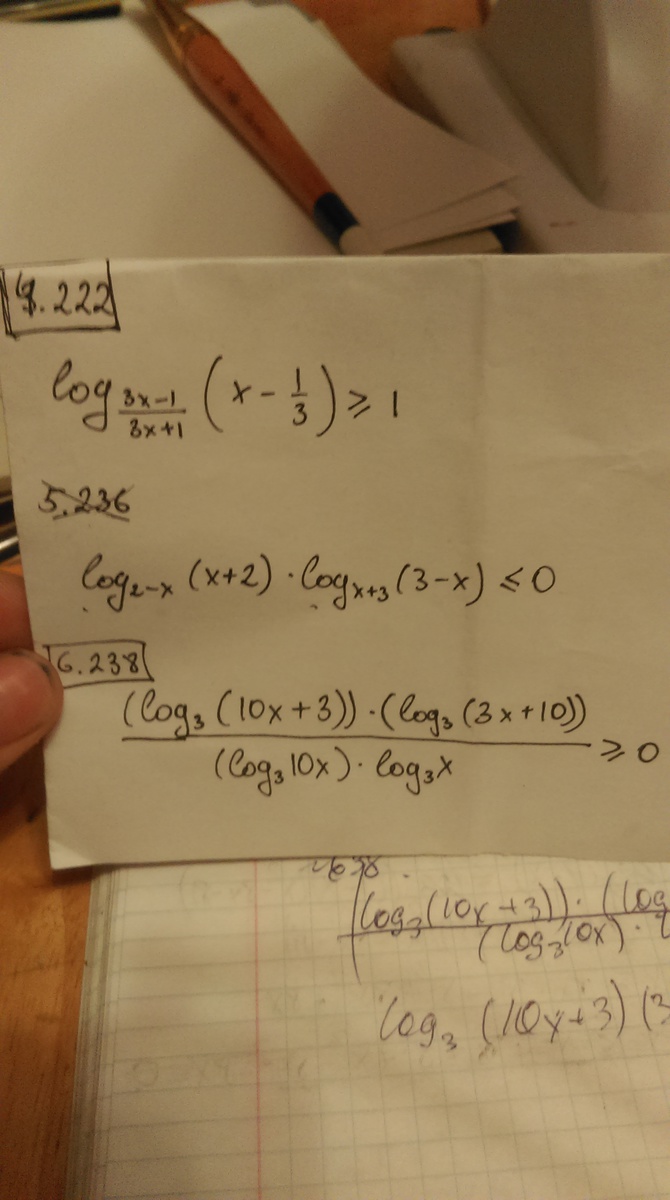 4.222
log_{\frac{3x-1}{3x+1}} (x - \frac{1}{3}) ⩾ 1
5.236
log_{2-x} (x+2) · log_{x+3} (3-x) ⩽ 0
6.238
\frac{(log_3 (10x+3)) · (log_3 (3x+10))}{(log_3 10x) · log_3 x} ⩾ 0
\frac{log_3 (10x+3)) · (log}{(log_3 10x) ·}
log_3 (10x+3) (3